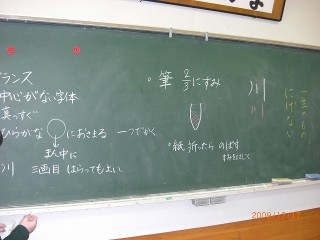 ランス
中心がない字体
真っすぐ
ひらがな ○におさまる 一つでかく
まん中に
川 三画目 はらってもよい
。筆 2/3にすみ
。紙 折ったら のばす
すみをなじ
一生のもの
にげない